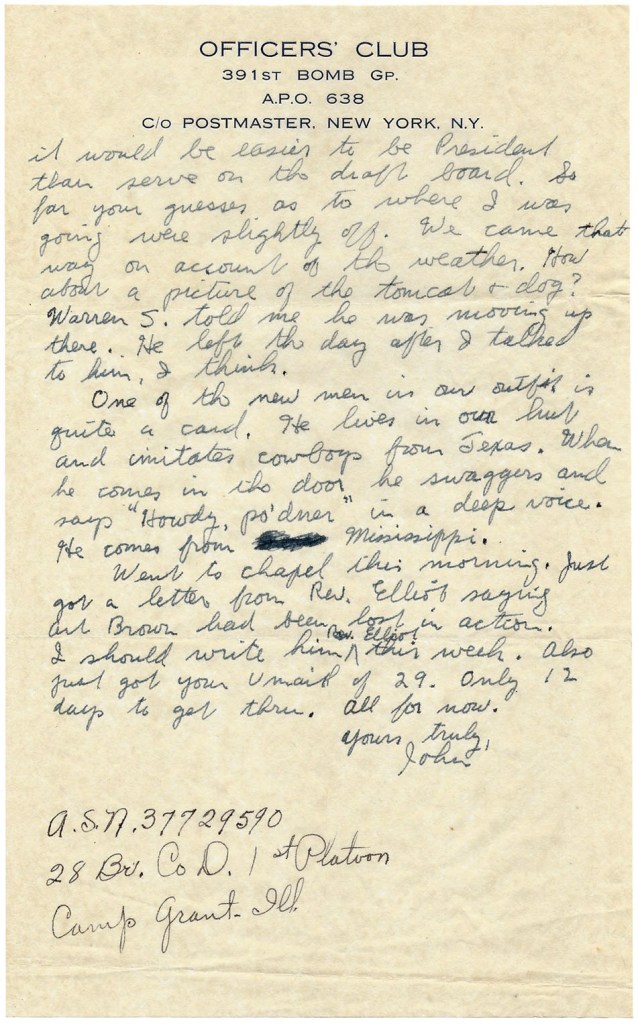 OFFICERS' CLUB
391ST BOMB GP.
A.P.O. 638
C/O POSTMASTER, NEW YORK, N.Y.
it would be easier to be President
than serve on the draft board. So
far your guesses as to where I was
going were slightly off. We came that
way on account of the weather. How
about a picture of the tomcat + dog?
Warren S. told me he was moving up
there. He left the day after I talked
to him, I think.
One of the new men in our outfit is
quite a card. He lives in our hut
and imitates cowboys from Texas. When
he comes in the door he swaggers and
says "Howdy, po'dner" in a deep voice.
He comes from Mississippi.
Went to chapel this morning. Just
got a letter from Rev. Elliot saying
Art Brown had been lost in action.
I should write him ^ Rev. Elliot this week. Also
just got your Vmail of 29. Only 12
days to get thru. All for now.
Yours truly,
John
A.S.N. 37729590
28 Bn. Co D. 1st Platoon
Camp Grant - Ill.